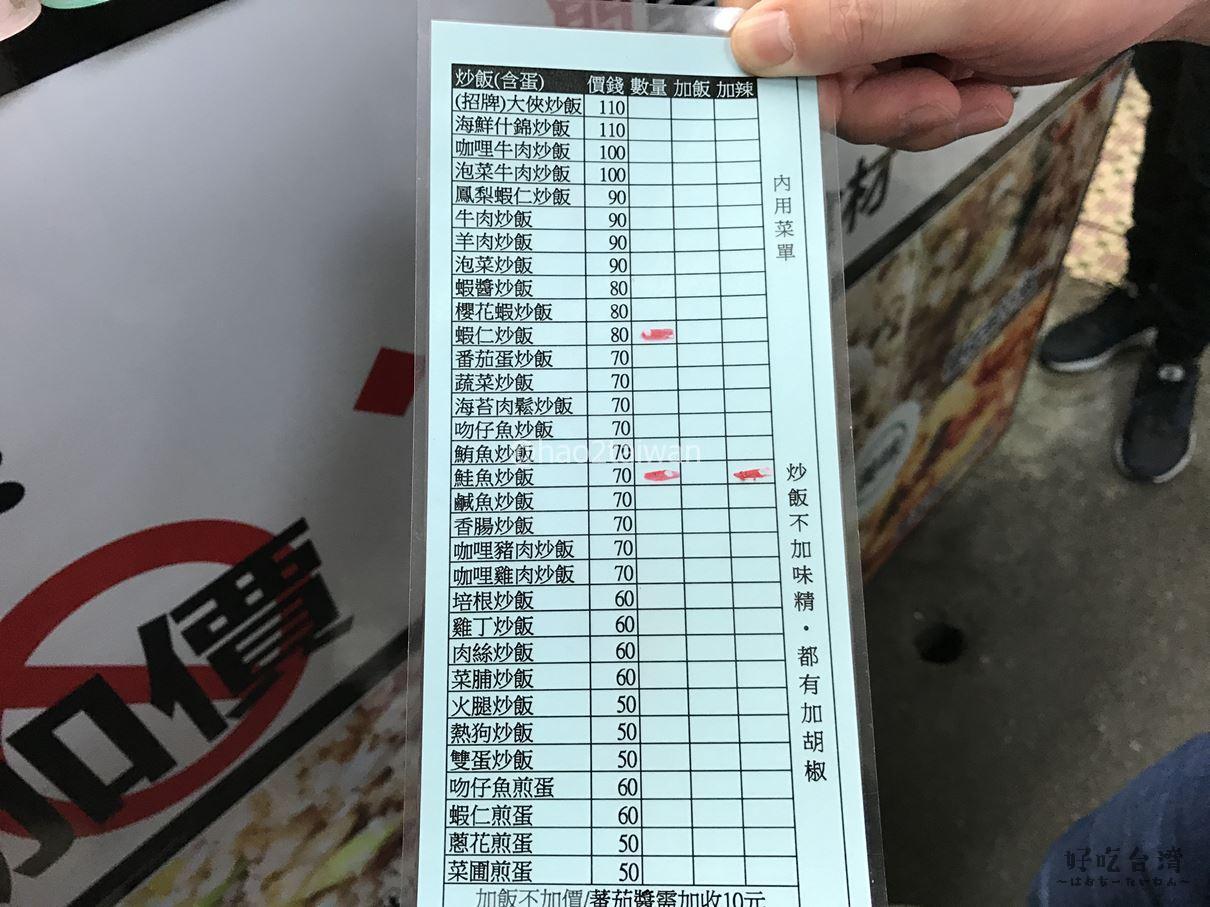 炒飯(含蛋) 價錢 數量 加飯 加辣
(招牌)大俠炒飯 110
海鮮什錦炒飯 110
咖哩牛肉炒飯 100
泡菜牛肉炒飯 100
鳳梨蝦仁炒飯 90
牛肉炒飯 90
羊肉炒飯 90
泡菜炒飯 90
蝦醬炒飯 80
櫻花蝦炒飯 80
蝦仁炒飯 80
番茄蛋炒飯 70
蔬菜炒飯 70
海苔肉鬆炒飯 70
吻仔魚炒飯 70
鮪魚炒飯 70
鮭魚炒飯 70
鹹魚炒飯 70
香腸炒飯 70
咖哩豬肉炒飯 70
咖哩雞肉炒飯 70
培根炒飯 60
雞丁炒飯 60
肉絲炒飯 60
菜脯炒飯 60
火腿炒飯 50
熱狗炒飯 50
雙蛋炒飯 50
吻仔魚煎蛋 60
蝦仁煎蛋 60
蔥花煎蛋 50
菜圃煎蛋 50
加飯不加價/蕃茄醬需加收10元
內用菜單
炒飯不加味精・都有加胡椒
加價
材
hao2taiwan
好吃台湾
～はおちーたいわん～